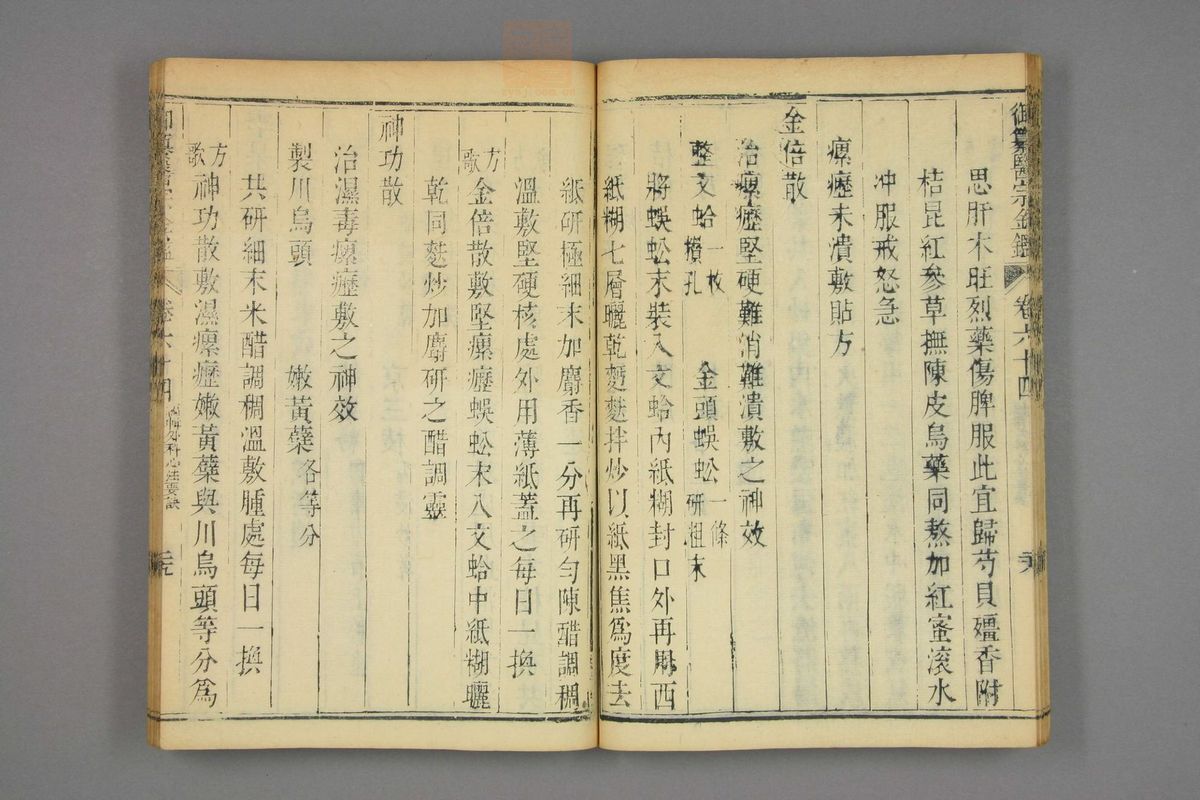 御纂醫宗金鑑 卷六十四
思肝木旺烈藥傷脾服此宜歸芍貝殭香附
桔昆紅參草撫陳皮烏藥同熬加紅蜜滾水
冲服戒怒急
瘰癧未潰敷貼方
金倍散
治瘰癧堅硬難消難潰敷之神效
整文蛤一枚攅孔 金頭蜈蚣一條研粗末
將蜈蚣末裝入文蛤內紙糊封口外再用西
紙糊七層曬乾麵麩拌炒以紙黑焦爲度去
紙研極細末加麝香一分再研勻陳醋調稠
溫敷堅硬核處外用薄紙蓋之每日一換
方歌 金倍散敷堅瘰癧蜈蚣末入文蛤中紙糊曬
乾同麩炒加麝研之醋調靈
神功散
治濕毒瘰癧敷之神效
製川烏頭 嫩黃蘗各等分
共研細末米醋調稠溫敷腫處每日一換
方歌 神功散敷濕瘰癧嫩黃蘗與川烏頭等分爲
卷六十四 外科心法要訣